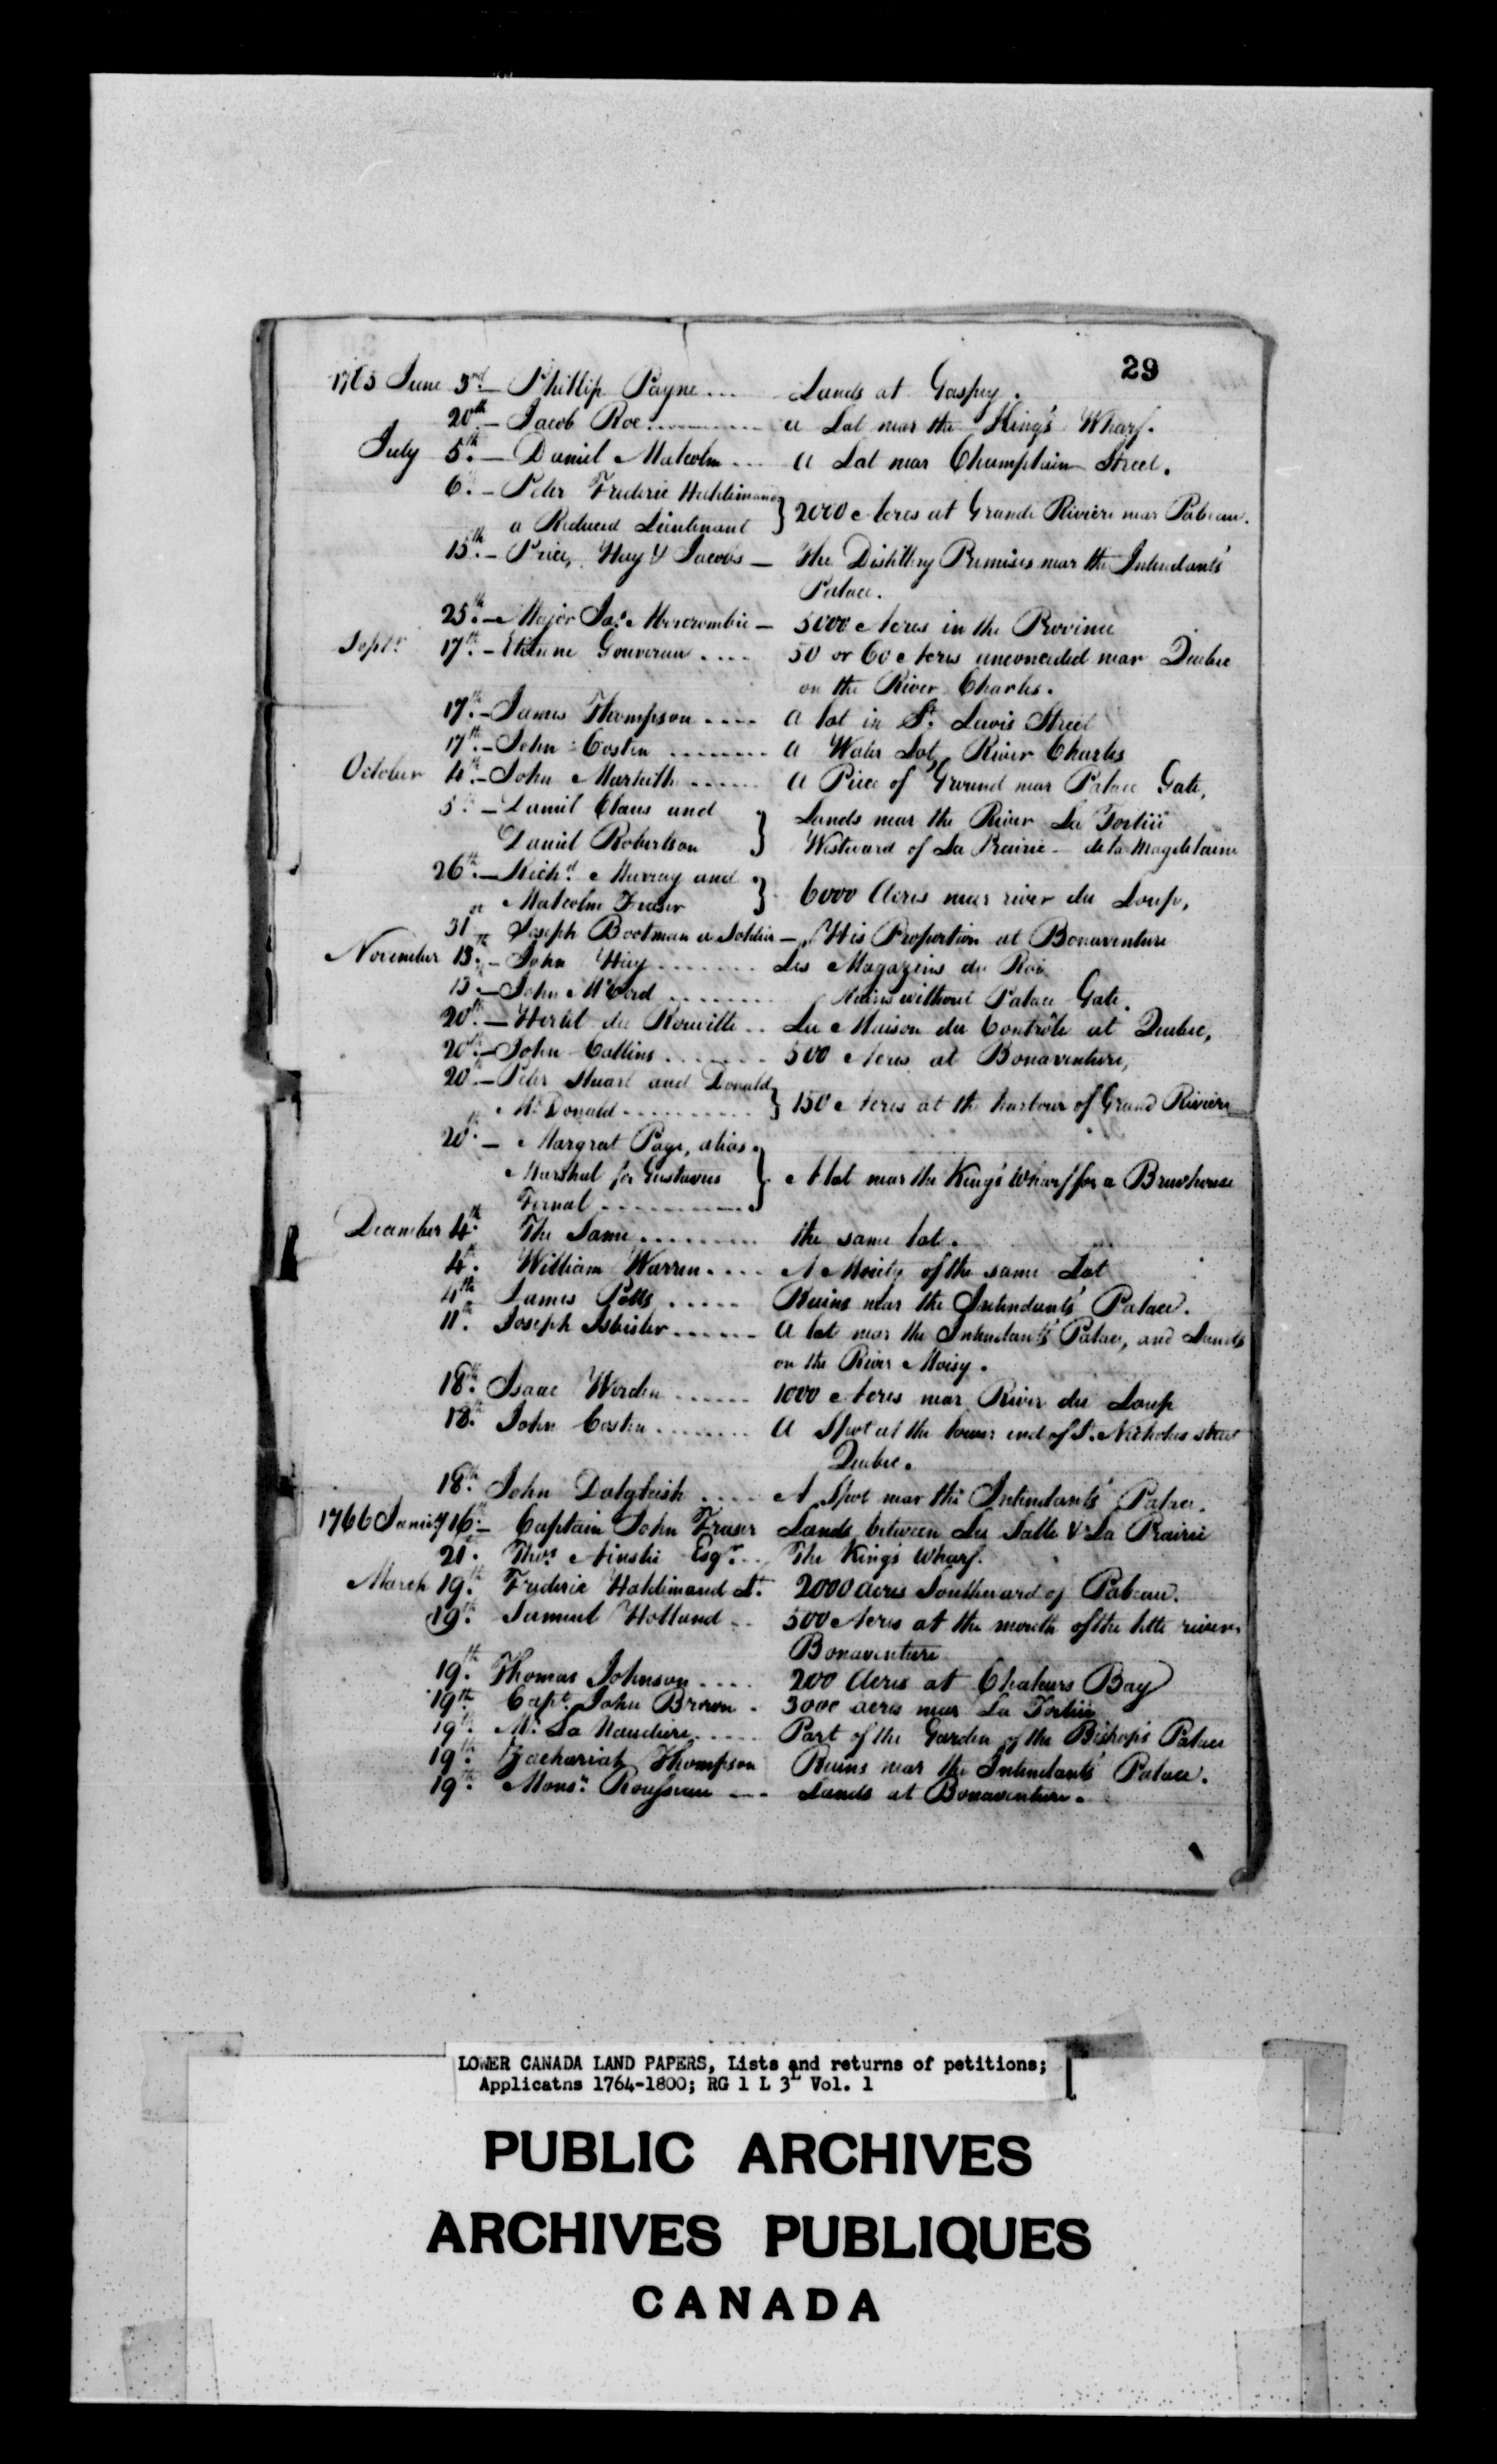 29
1765 June 3rd. — Phillip Payne ... Lands at Gaspey.
20th. — Jacob Roe ......... a Lot near the King's Wharf.
July 5th. — Daniel Malcolm ... A Lot near Champlain Street.
6th. — Peter Frederic Haldimand
a Reduced Lieutenant } 2000 Acres at Grande Riviere near Pabeau.
15th. — Price, Hay & Jacobs — The Distillery Premises near the Intendants'
Palace.
25th. — Major Jas. Abercrombie — 5000 Acres in the Province
Septr. 17th. — Etienne .... 50 or 60 Acres unconceded near Quebec
on the River Charles.
17th. — James Thompson .... A lot in St. Lewis Street
17th. — John Costen ........ A Water Lot, River Charles
October 4th. — John ...... A Piece of Ground near Palace Gate,
5th — Daniel Claus and } Lands near the River La Tortüe
Daniel Robertson Westward of La Prairie — de la Magdelaine
26th. — Richd. Murray and }
Malcolm Fraser 6000 Acres near river du Loup,
31 Joseph Bootman a Soldier — His Proportion at Bonaventure
November 13th. — John Hay ....... Les Magazins du Roi
13 — John McCord ........ Ruins without Palace Gate.
20th. — Hertel de Rouville .. La Maison du Contrôle at Quebec,
20th. — John Collins ....... 500 Acres at Bonaventure,
20th — Peter Stuart and Donald
McDonald .......... } 150 Acres at the harbour of Grand Riviere
20th. — Margreat Page, alias
Marshal for Gustavus } A lot near the King's Wharf for a Brewhouse
..........
December 4th. The Same ........ the same lot.
4th. William Warren .... A Moiety of the same Lot
4th James Potts ..... Ruins near the Intendants' Palace.
11th. Joseph Isbister ...... A lot near the Intendants' Palace, and Lands
on the River Moisy.
18th. Isaac Werden ...... 1000 Acres near River du Loup
18th. John Costen ........ A Spot at the lower end of St. Nicholas street
Quebec.
18th. John Dalgleish .... A Spot near the Intendants' Palace.
1766 Janry 16th. — Captain John Fraser Lands between La Salle & La Prairie
21. Thos. Ainslie Esqr. .. The King's Wharf.
March 19th. Frederic Haldimand Lt. 2000 acres Southward of Pabeau.
19th. Samuel Holland .. 500 Acres at the mouth of the little river,
Bonaventure
19th. Thomas Johnson .... 200 Acres at Chaleurs Bay
19th. Capt. John Brown . 3000 acres near La Tortüe
19th. Mr. La Naudiere ..... Part of the Garden of the Bishop's Palace
19th. Zachariah Thompson Ruins near the Intendants' Palace.
19th. Monsr. Rousseau --- Lands at Bonaventure.
LOWER CANADA LAND PAPERS, Lists and returns of petitions;
Applicatns 1764-1800; RG 1 L 3L Vol. 1
PUBLIC ARCHIVES
ARCHIVES PUBLIQUES
CANADA